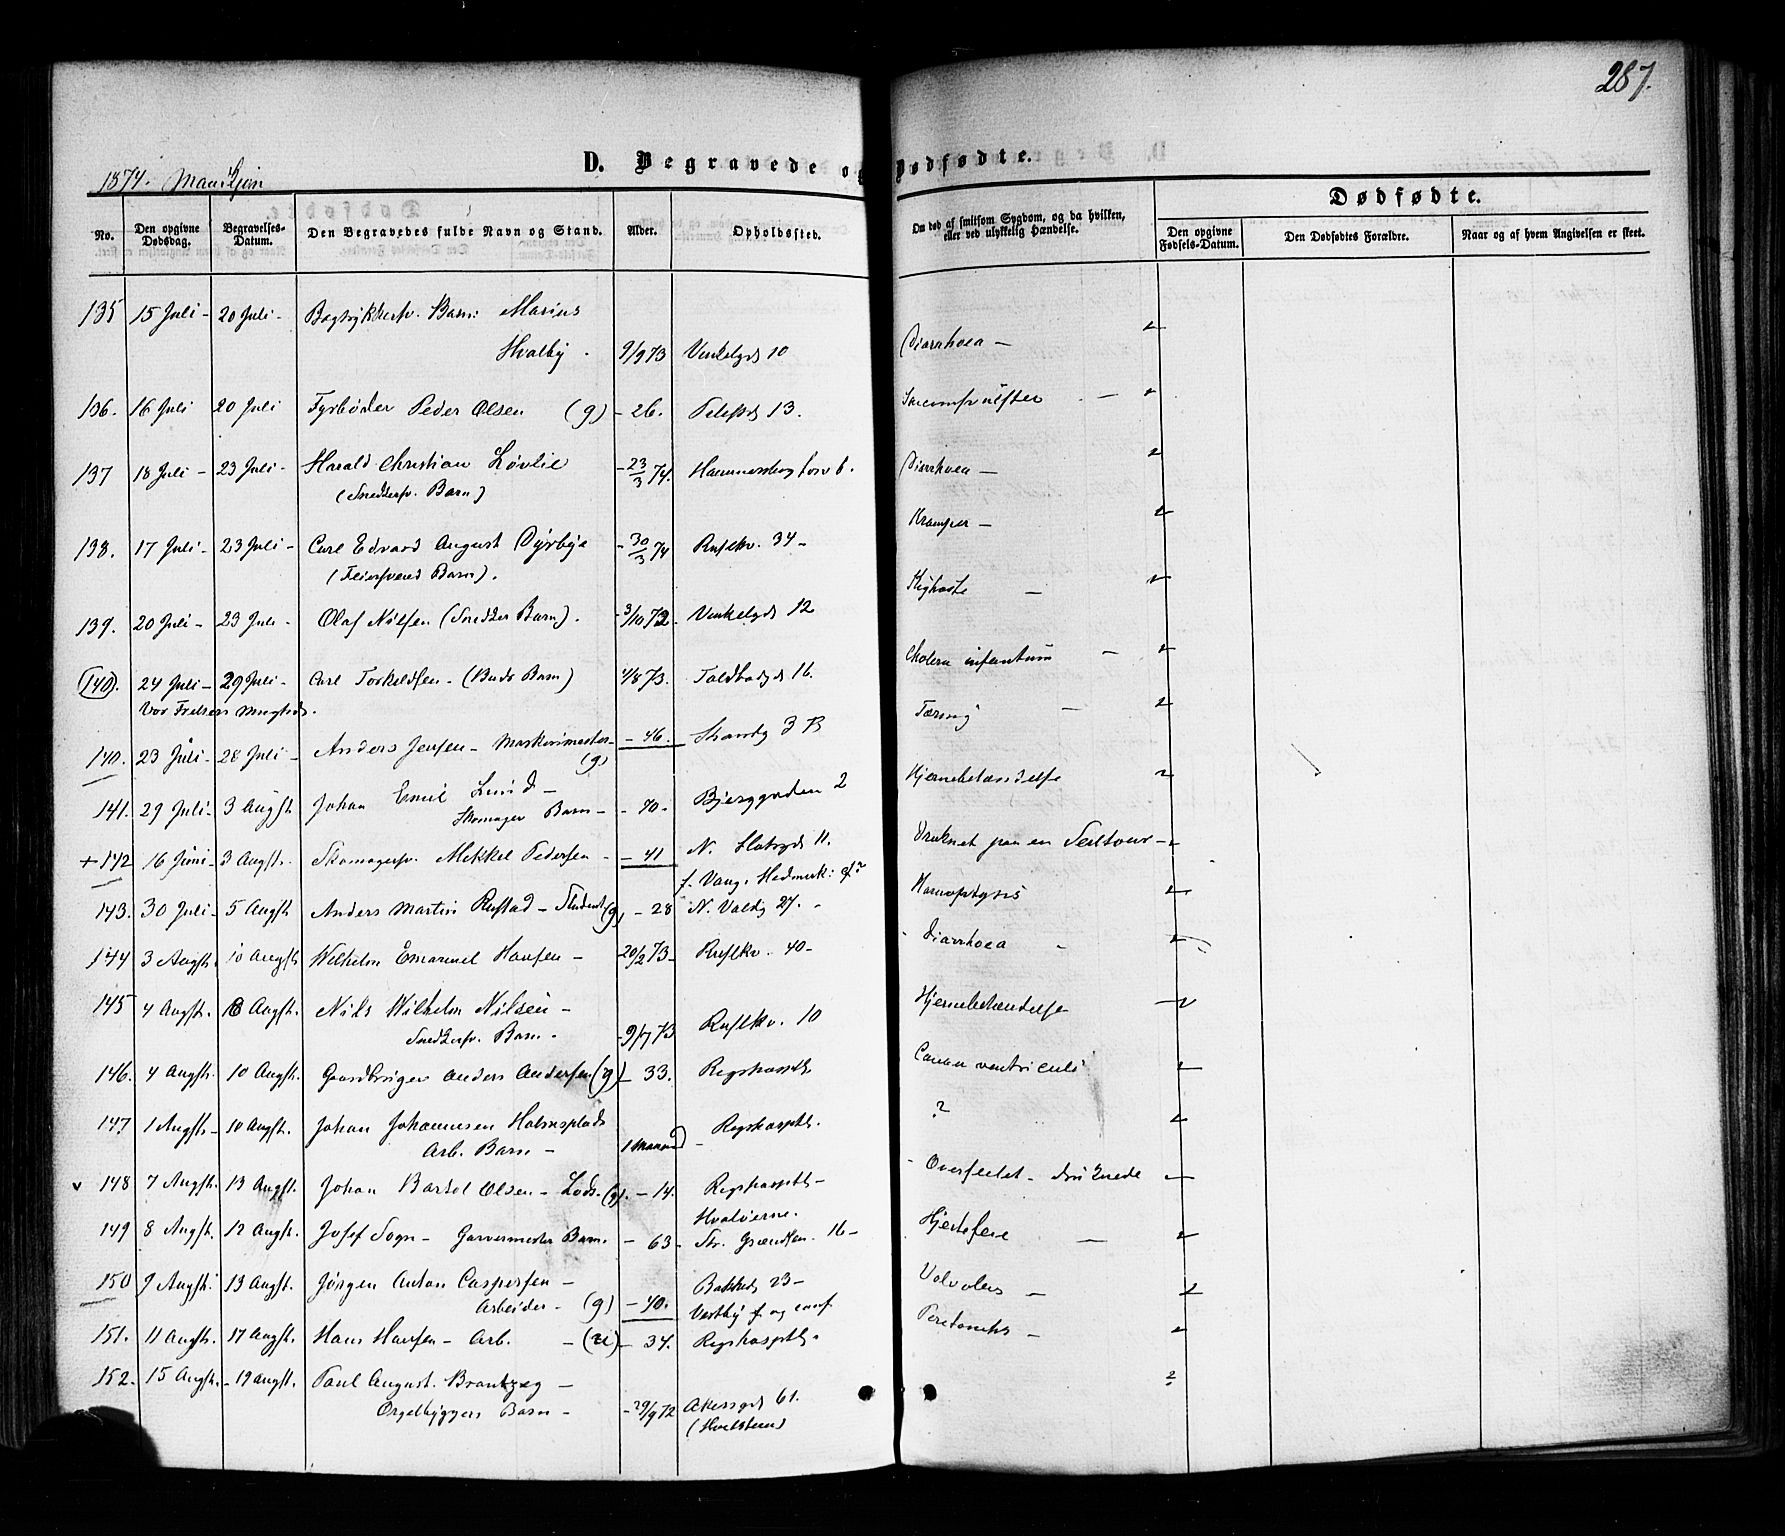 287.
D. Begravede og Dødfødte.
1874. Mandkjøn
No.
Den opgivne Dødsdag.
Begravelses-Datum.
Den Begravedes fulde Navn og Stand.
Alder.
Opholdssted.
Om død af smitsom Sygdom, og da hvilken, eller ved ulykkelig Hændelse.
Dødfødte.
Den opgivne Fødsels-Datum.
Den Dødfødtes Forældre.
Naar og af hvem Angivelsen er skeet.
135 15 Juli - 20 Juli - Bogtrykkersv. Barn: Marius
Hvalby - 9/9 73 Vinkelgd 10 Diarrhoea -
136. 16 Juli 20 Juli Fyrbøder Peder Olsen (g) - 26. 13.
137 18 Juli - 23 Juli - Harald Christian Løvlie - 23/3 74. Hammersborg 6. Diarrhoea -
(Snedkersv. Barn)
138. 17 Juli - 23 Juli - Carl Edvard August Dyrbye - 30/3 74 Ruslkv. 34 - Kramper -
(Feiersvend Barn).
139. 20 Juli - 23 Juli - Olaf Nilsen (Snedker Barn). - 3/10 72 - Vinkelgd 12 Kighoste -
(140). 24 Juli - 29 Juli - Carl Torkeldsen - (Buds Barn) 4/8 73. Toldbodgd 16. Cholera infantum -
Vor Frelsers Menighed.
140. 23 Juli - 28 Juli - Anders Jensen - Maskinmester - - 46. Strandg 3 B Tæring -
(g)
141. 29 Juli - 3 Augst. Johan Emil Lund - - 40 - Bjerggaden 2 Hjernebetændelse
Skomager Barn -
+ 142 16 Juni - 3 Augst. Skomagersv. Mikkel Pedersen - - 41 N. Slotsgd 11. Druknet paa en Seiltour -
f. Vang, Hedmark:
143. 30 Juli - 5 Augst Anders Martin Rustad - Student (g) - 28 N. Voldg 27. - Hæmoptysis
144 3 Augst. 10 Augst Wilhelm Emanuel Hansen - 20/2 73 - Ruslkv. 40 - Diarrhoea -
145 4 Augst. 10 Augst. Nils Wilhelm Nilsen - Hjernebetændelse
Snedkersv. Barn. - 9/7 73 Ruslkv. 10
146. 4 Augst. 10 Augst. Gaardbruger Anders Andersen (g) - 33. Rigshospitl. Cancer ventriculi
147 1 Augst - 10 Augst. Johan Johannesen Holmsplads Rigshospitl. ?
Arb. Barn - 1 Maaned -
v 148 7 Augst. 13 Augst. Johan Bartol Olsen - Lods. (g). - 14. Rigshospitl - Overseilet - druknede
Hvaløerne.
149 8 Augst. 12 Augst. Josef Sogn - Garvermester Barn. - 63 - Str. Grændsen. 16 - Hjertefeil -
150 9 Augst 13 Augst. Jörgen Anton Caspersen - Bakkegd 23 - Volvolus -
Arbeider - (g) - 40. Vestby f. og conf
151. 11 Augst. 17 Augst. Hans Hansen - Arb. - (u) - 34. Rigshospitl. Peretonitis -
152. 15 Augst. - 19 Augst. Paul August. Brantzeg -
Orgelbyggers Barn - - 29/9 72 Akersgd 61.
(Hvidsteen)